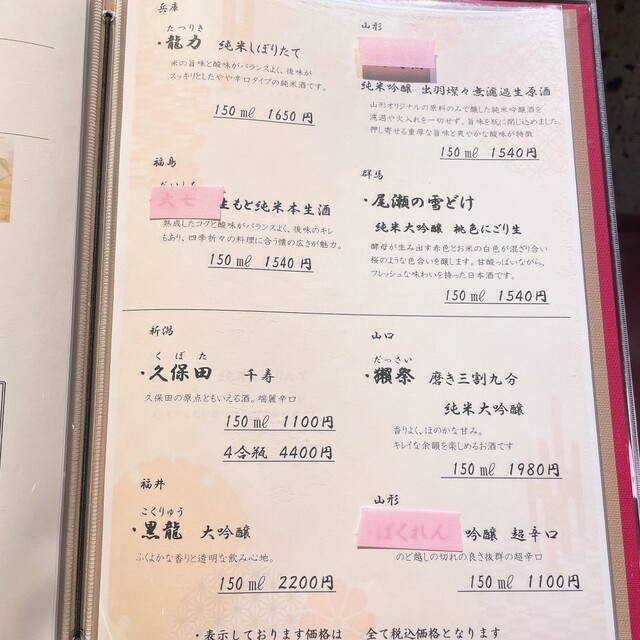 兵庫
たつりき
・龍力 純米しぼりたて
米の旨味と酸味がバランスよく、後味が
スッキリとしたやや辛口タイプの純米酒です。
150㎖ 1650円
福島
大七 生もと純米本生酒
熟成したコクと酸味がバランスよく、後味のキレ
もあり、四季折々の料理に合う懐の広さが魅力。
150㎖ 1540円
山形
純米吟醸 出羽燦々無濾過生原酒
山形オリジナルの原料のみで醸した純米吟醸酒を
濾過や火入れを一切せず、旨味を瓶に閉じ込めました。
押し寄せる重厚な旨味と爽やかな酸味が特徴
150㎖ 1540円
群馬
・尾瀬の雪どけ
純米大吟醸 桃色にごり生
酵母が生み出す赤色とお米の白色が混ざり合い
桜のような色合いを醸します。甘酸っぱいながら、
フレッシュな味わいを持った日本酒です。
150㎖ 1540円
新潟
くぼた
・久保田 千寿
久保田の原点ともいえる酒。端麗辛口
150㎖ 1100円
4合瓶 4400円
福井
こくりゅう
・黒龍 大吟醸
ふくよかな香りと透明な飲み心地。
150㎖ 2200円
山口
だっさい
・獺祭 磨き三割九分
純米大吟醸
香りよく、ほのかな甘み。
キレイな余韻を楽しめるお酒です
150㎖ 1980円
山形
・ばくれん 吟醸 超辛口
のど越しの切れの良さ抜群の超辛口
150㎖ 1100円
・表示しております価格は 全て税込価格となります